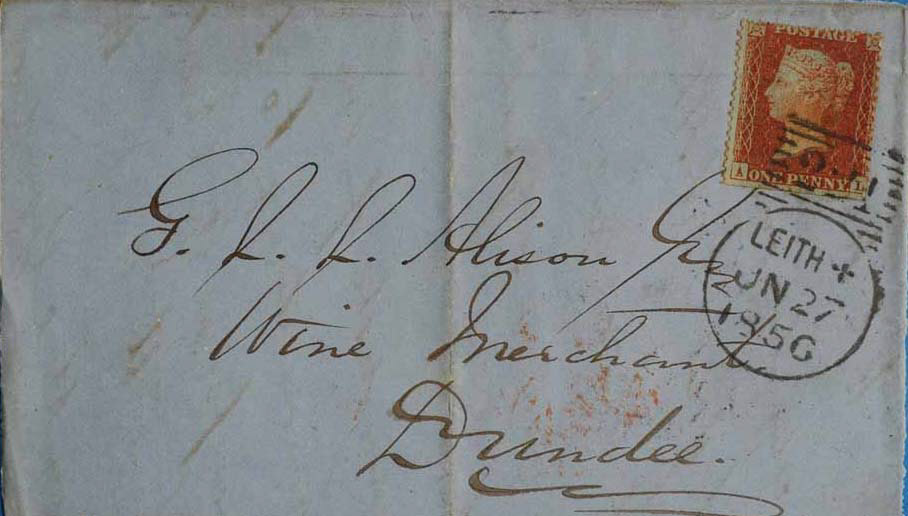 POSTAGE
A ONE PENNY L
LEITH
JN 27
1856
G. L. L. Alison
Wine Merchant
Dundee.